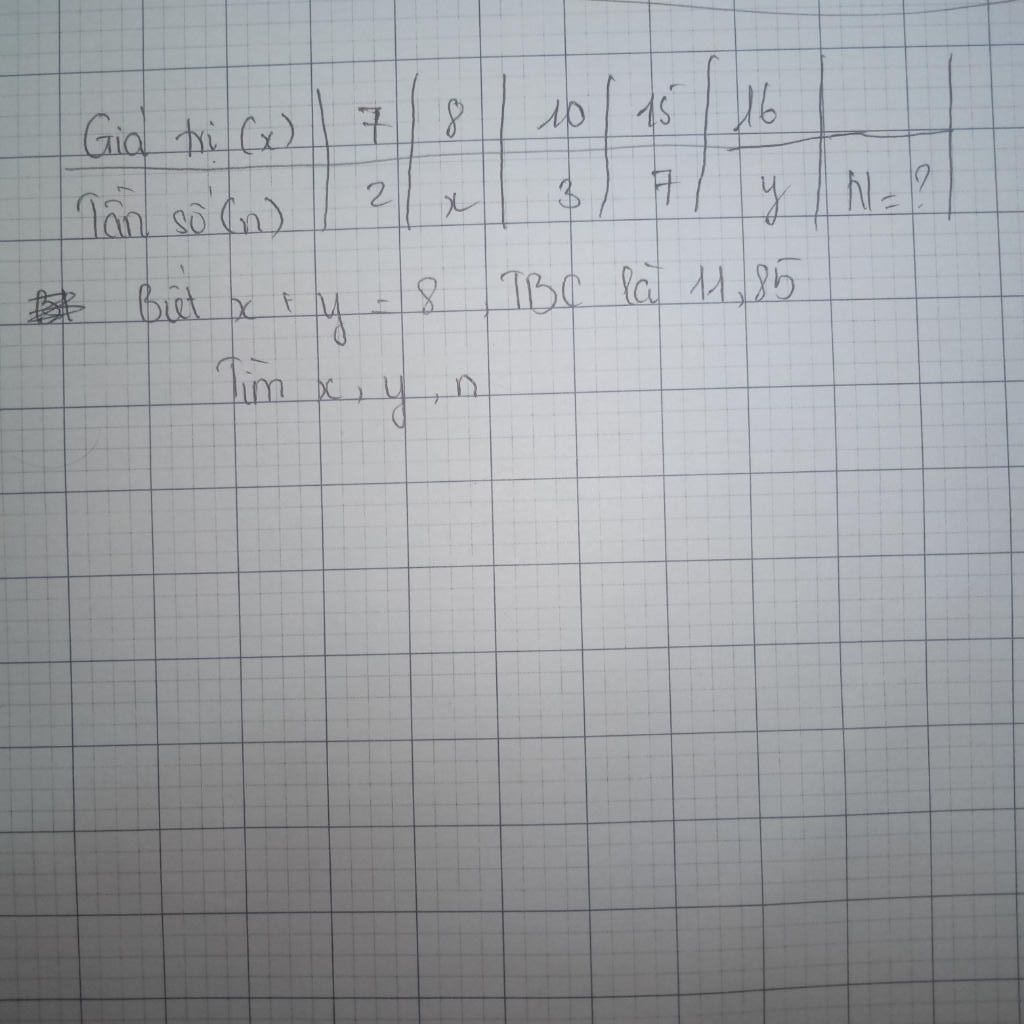 Giá trị (x) | 7 | 8 | 10 | 15 | 16 |
Tần số (n) | 2 | x | 3 | 7 | y | N = ?
Biết x + y = 8, TBC là 11,85
Tìm x, y, n